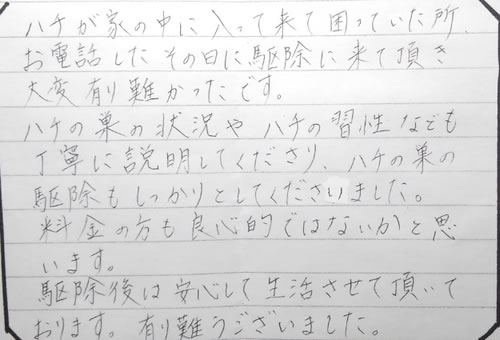 ハチが家の中に入って来て困っていた所、
お電話したその日に駆除に来て頂き
大変有り難かったです。
ハチの巣の状況やハチの習性なども
丁寧に説明してくださり、ハチの巣の
駆除もしっかりとしてくださいました。
料金の方も良心的ではないかと思
います。
駆除後は安心して生活させて頂いて
おります。有り難うございました。